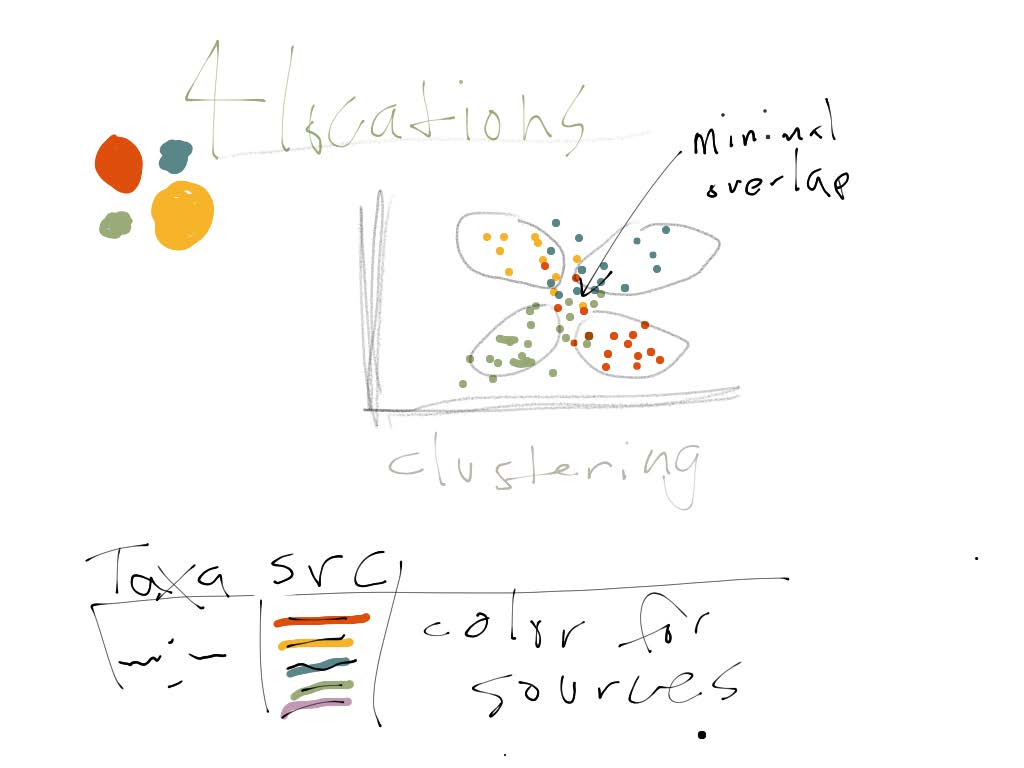 4 locations
minimal
overlap
clustering
Taxa src
color for
sources